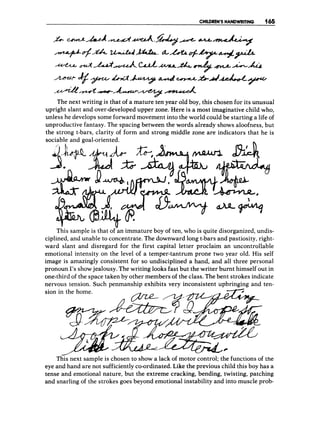 CHILDREN'S HANDWRITING 165
to come back next week. Today we are making
a map of the United States. A lots of boys and girls
were out last week. Call me the only one in his
your If you don't hurry and come to school you
will not
The next writing is that of a mature ten year old boy, this chosen for its unusual
upright slant and over-developed upper zone. Here is a most imaginative child who,
unless he develops some forward movement into the world could be starting a life of
unproductive fantasy. The spacing between the words already shows aloofness, but
the strong t-bars, clarity of form and strong middle zone are indicators that he is
sociable and goal-oriented.
I hope you
I had to stay after yesterday
hopes
that you will come back
Donald and Danny are going
Billy
This sample is that of an immature boy of ten, who is quite disorganized, undis-
ciplined, and unable to concentrate. The downward long t-bars and pastiosity, right-
ward slant and disregard for the first capital letter proclaim an uncontrollable
emotional intensity on the level of a temper-tantrum prone two year old. His self
image is amazingly consistent for so undisciplined a hand, and all three personal
pronoun I's show jealousy. The writing looks fast but the writer burnt himself out in
one-third of the space taken by other members of the class. The bent strokes indicate
nervous tension. Such penmanship exhibits very inconsistent upbringing and ten-
sion in the home.
are
better I
hope you will be
I hope you will
like these letters.
This next sample is chosen to show a lack of motor control; the functions of the
eye and hand are not sufficiently co-ordinated. Like the previous child this boy has a
tense and emotional nature, but the extreme cracking, bending, twisting, patching
and snarling of the strokes goes beyond emotional instability and into muscle prob-